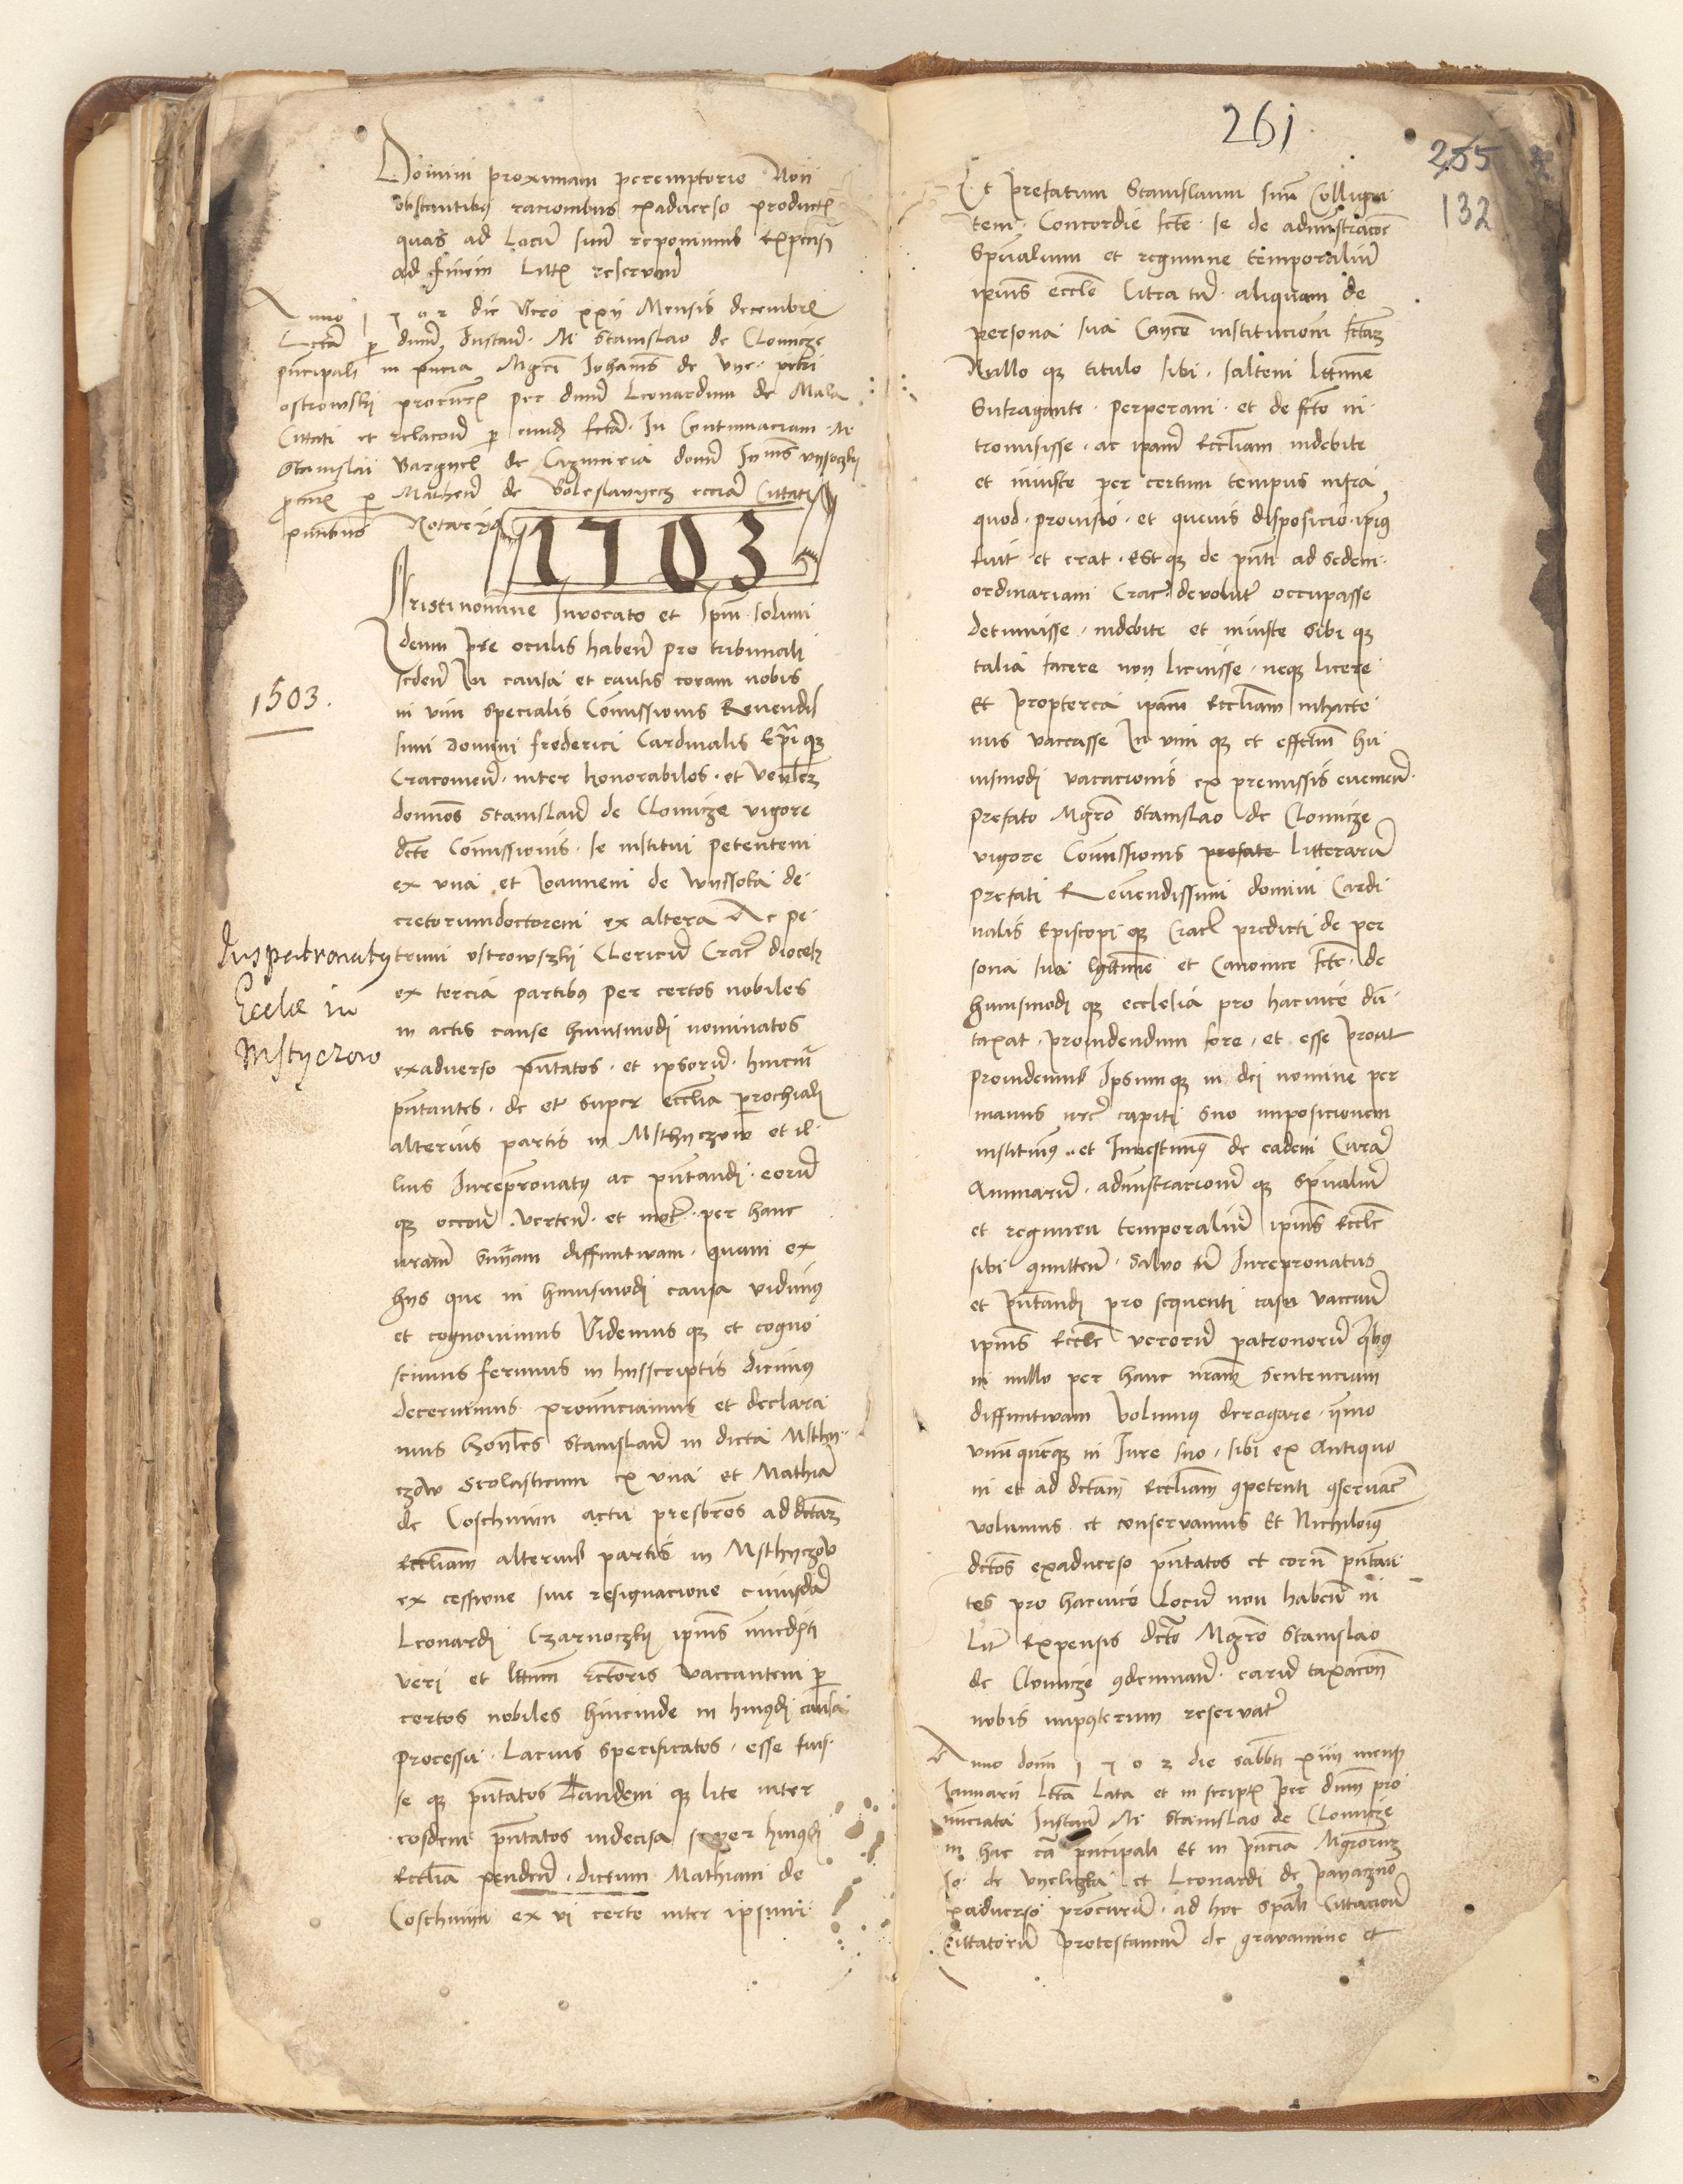 Domini proximam peremptorie Non
obstantibus racionibus exadverso product
quas ad Locum suum reponimus Expens
ad finem Litis reservand
Anno 1502 die vero xxij Mensis decembris
Lecta per dnum Instan M Stanislao de Clomicze
principali in pncia Mgri Johannis de petri
ostrowskij procuratoris per dnum Leonardum de Mala
Cittati et relacione per eund facta In Contumaciam M
Stanislai Bargyel de Cazimiria domini Johannis Vyssoczkij
procuratoris per Matheum de Boleslavyecz eciam Cittati
pntibus Notariis
1503
Cristi nomine Invocato et Ipsum solum
deum pre oculis haben pro tribunali
seden In causa et causis coram nobis
1503.
in vim specialis Comissionis Reverendis
simi domini frederici Cardinalis Epi qz
Cracovien inter honorabiles et Venbles
dominos Stanislaum de Clomicze vigore
dcte Comissionis se institui petentem
ex una et Joannem de Wyssoka de
cretorum doctorem ex altera Ac pe
Jus patronatus
Eccla in
Mstyczow
trum ostrowszkij Clericum Crac dioces
ex tercia partibus per certos nobiles
in actis cause huiusmodi nominatos
exadverso pntatos et ipsorum hincinde
pntantes de et super ecclia parochiali
alterius partis in Msthyczow et il
lius Jurepronatus ac pntandi eorum
qz occon verten et mot per hanc
nram sniam diffinitivam quam ex
hys que in huiusmodi causa vidimus
et cognovimus Videmus qz et cogno
scimus ferimus in hysscriptis dicimus
decernimus pronunciamus et declara
mus Honbles Stanislaum in dicta Msthy
czow Scolasticum ex una et Mathiam
de Coschmin actu presbros ad dctam
Eccliam alterius partis in Msthyczow
ex cessione sive resignacione cuiusdam
Leonardi Czarnoczkij ipius inmediati
veri et lttimi rectoris vaccantem per
certos nobiles hincinde in huiusmodi causa
processu Lacius specificatos esse fuis
se qz pntatos Tandem qz lite inter
eosdem pntatos indecisa super huiusmodi
Ecclia penden dictum Mathiam de
Coschmin ex vi certe inter ipsum
261
255
132
Et prefatum Stanislaum suum Colliga
tem Concordie fcte se de administracoe
Spualium et regimine temporalium
ipius eccle Citra tn aliquam de
persona sua Canoce institucionem fctam
Nullo qz titulo sibi saltem lttimme
Sufragante perperam et de fcto in
tromisisse ac ipam Eccliam indebite
et iniuste per certum tempus infra
quod provisio et quevis disposicio ipius
fuit et erat Est qz de pnti ad sedem
ordinariam Crac devoluta occupasse
detinuisse indebite et iniuste Sibi qz
talia facere non licuisse neqz licere
Et propterea ipam Eccliam inhacte
nus vaccasse In vim qz et effctum hu
iusmodi vacacionis ex premissis evenien
prefato Mgro Stanislao de Clomicze
vigore Comissionis prefate litterarum
prefati Reverendissimi domini Cardi
nalis Episcopi qz Crac predicti de per
sona sua lgittime et Canonice fcte de
huiusmodi qz ecclesia pro hacvice dum
taxat providendum fore et esse prout
providemus Ipsum qz in dei nomine per
manus nre capiti suo imposicionem
instituimus et Investimus de eadem Curam
Animarum administracionem qz Spualium
et regimen temporalium ipius Eccle
sibi committen Salvo tn Jurepronatus
et pntandi pro sequenti casu vaccan
ipius Eccle verorum patronorum quibus
in nullo per hanc nram Sentenciam
diffinitivam Volumus derogare ymo
unumquemqz in Jure suo sibi ex Antiquo
in et ad dctam Eccliam competenti conservare
volumus et conservamus Et Nichilominus
dctos exadverso pntatos et eorum pntan
tes pro hacvice Locum non haben in
Lit Expensis dcto Mgro Stanislao
de Clomicze condemnan earum taxacon
nobis inposterum reservat
Anno dom 1503 die sabbti xiiij mens
Januarii lcta Lata et in script per dnum pro
nuncciata Instan M Stanislao de Clomicze
in hac ca principali Et in pncia Mgrorum
Jo de Vyelizka et Leonardi de
exadverso procurum ad hoc spali Cittacion
Cittatorum protestancium de gravamine et